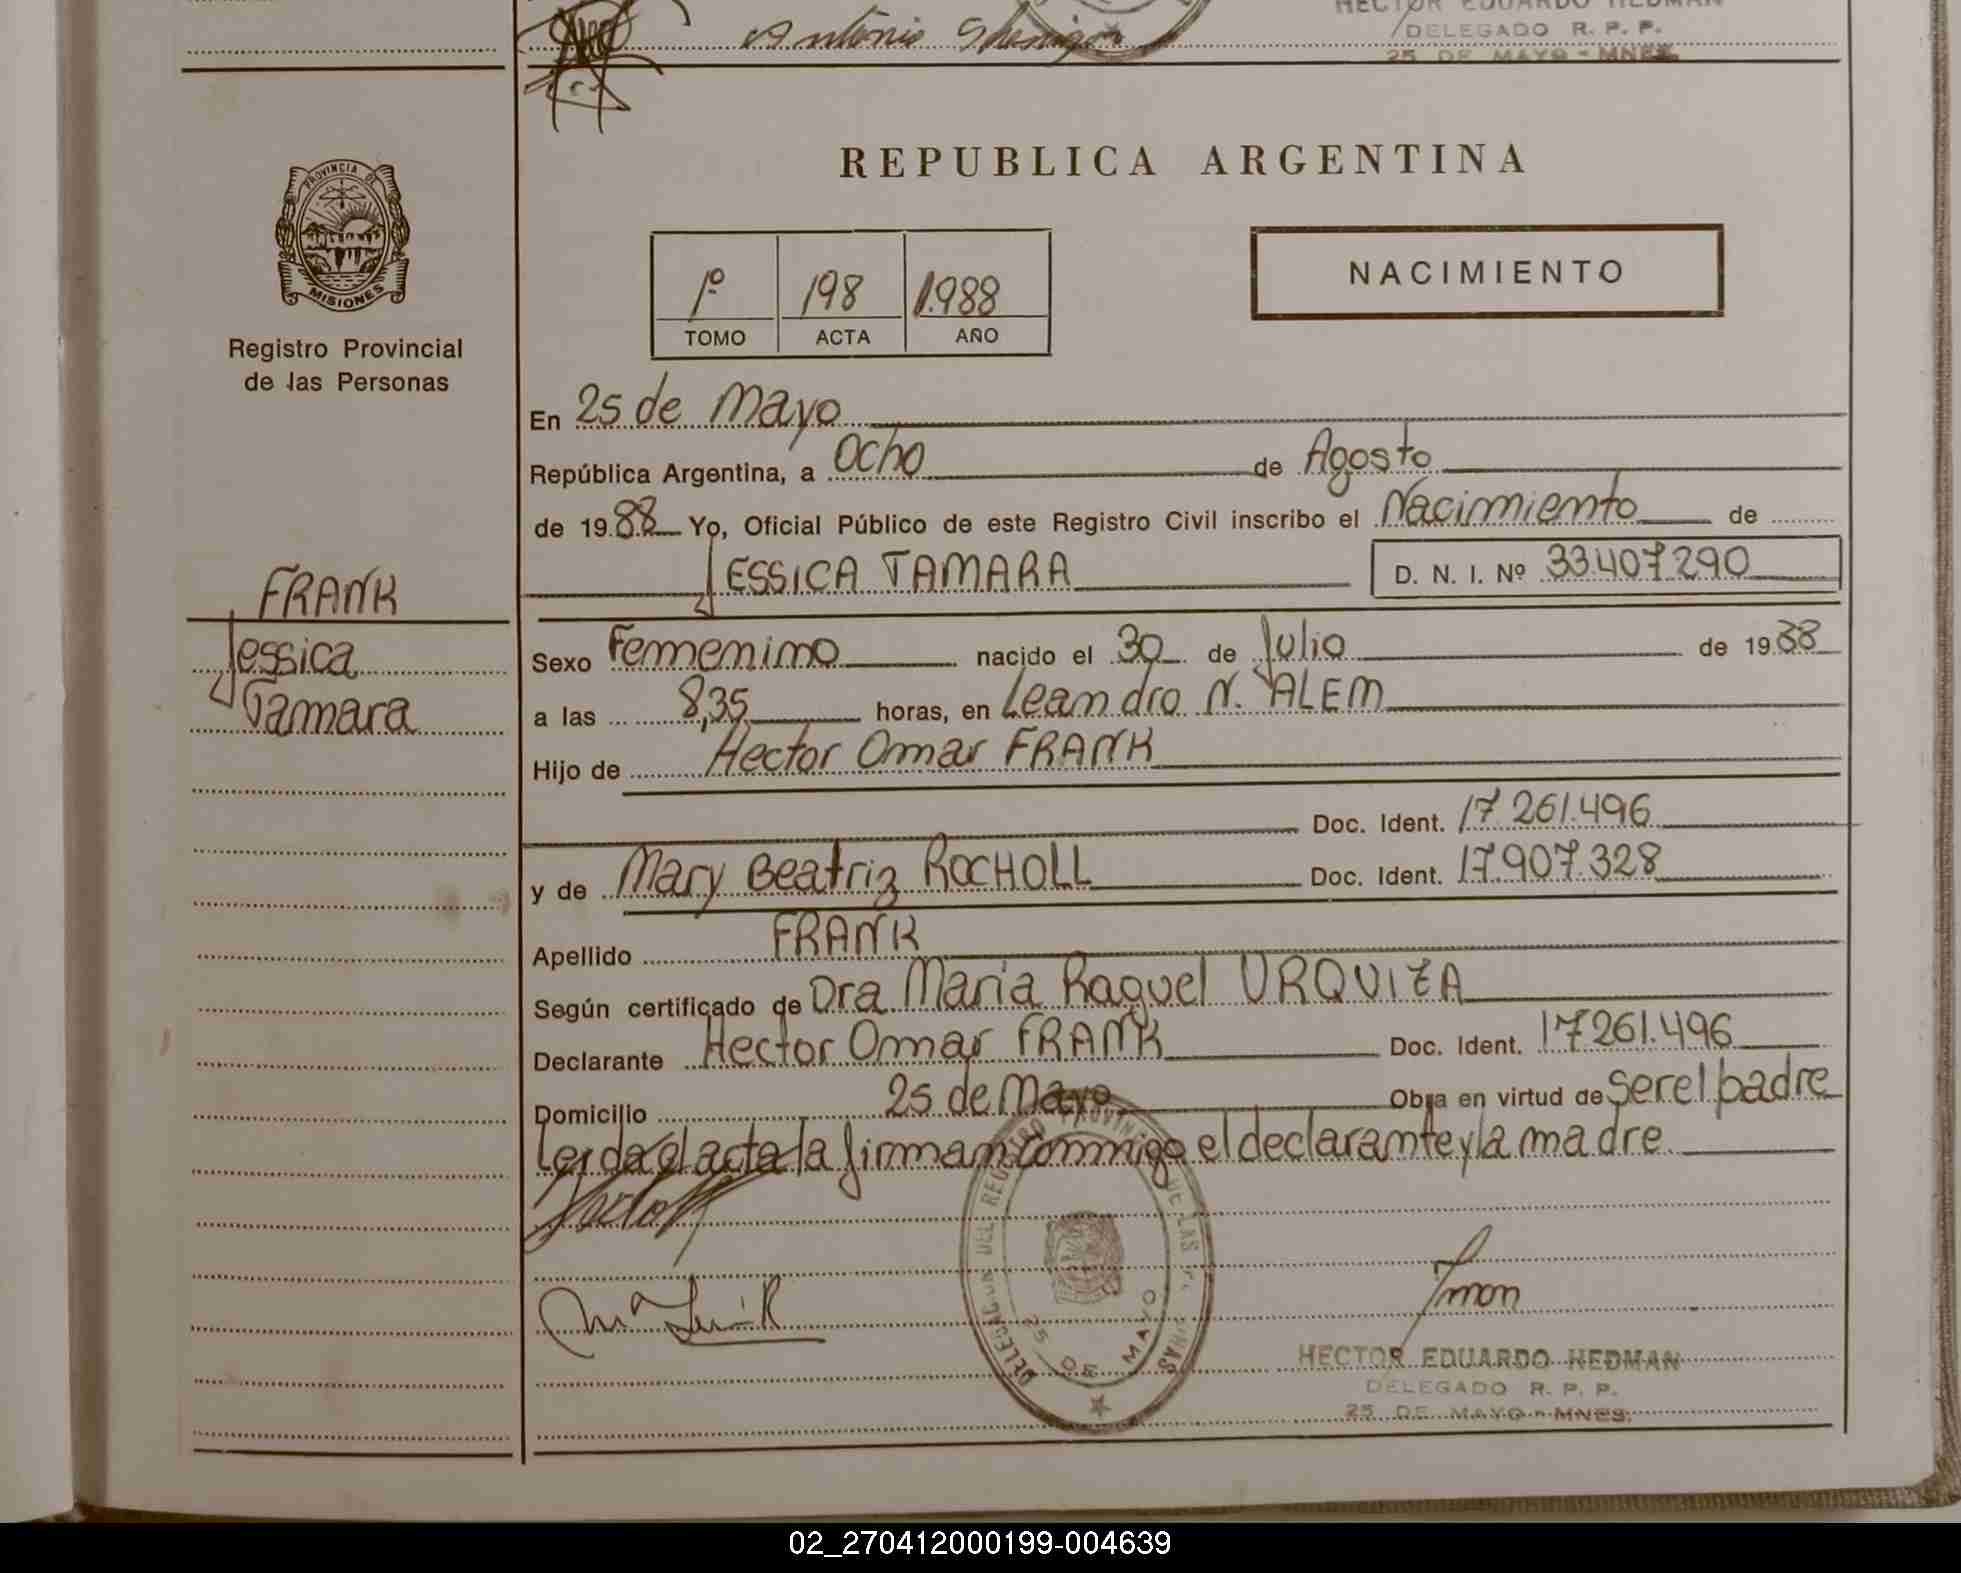 Antonio
HECTOR EDUARDO HEDMAN
DELEGADO R. P. P.
25 DE MAYO - MNES.
PROVINCIA DE
MISIONES
Registro Provincial
de las Personas
FRANK
Jessica
Tamara
REPUBLICA ARGENTINA
1º 198 1.988
TOMO ACTA AÑO
NACIMIENTO
En 25 de Mayo
República Argentina, a Ocho de Agosto
de 1988 Yo, Oficial Público de este Registro Civil inscribo el Nacimiento de
JESSICA TAMARA D. N. I. Nº 33.407.290
Sexo Femenino nacido el 30 de Julio de 1988
a las 8,35 horas, en Leandro N. ALEM
Hijo de Hector Omar FRANK
Doc. Ident. 17.261.496
y de Mary Beatriz ROCHOLL Doc. Ident. 17.907.328
Apellido FRANK
Según certificado de Dra Maria Raquel URQUIZA
Declarante Hector Omar FRANK Doc. Ident. 17261.496
Domicilio 25 de Mayo Obra en virtud de Ser el padre
Leida el acta la firman conmigo el declarante y la madre
DELEGACION DEL REGISTRO PROVINCIAL DE LAS PERSONAS
25 DE MAYO
HECTOR EDUARDO HEDMAN
DELEGADO R. P. P.
25 DE MAYO - MNES.
02_270412000199-004639